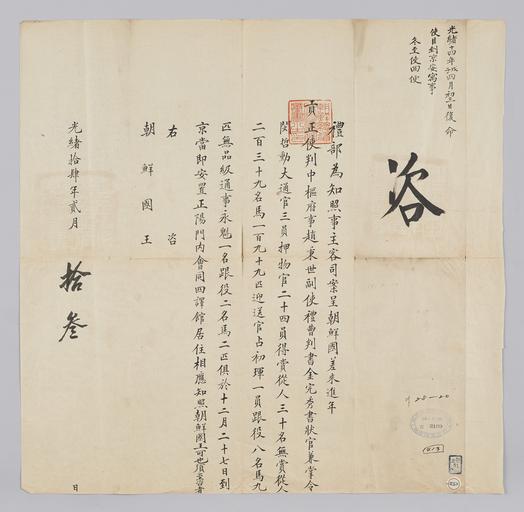 光緒十四年戊子四月初三日復命
使臣到京安寓事
冬至使回便
咨
禮部為知照事主客司案呈朝鮮國差來進年
貢正使判中樞府事趙秉世副使禮曹判書金完秀書狀官兼掌令
閔哲勳大通官三員押物官二十四員得賞從人三十名無賞從人
二百三十九名馬一百九十九匹迎送官占初琿一員跟役八名馬九
匹無品級通事永魁一名跟役二名馬二匹俱於十二月二十七日到
京當即安置正陽門內會同四譯館居住相應知照朝鮮國王可也須至咨者
右咨
朝鮮國王
光緒拾肆年貳月
拾叄
日